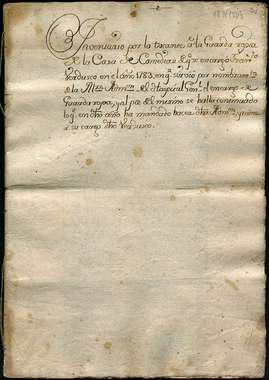 Inventario por lo tocante, a la Guarda ropia
de la Casa de Comedias de q.e se encargó Fran.co
Verdusco en el año 1783, en q.e sirvio por nombram.to
de la M.e Adm.on del Hospital Gen.l el encargo de
Guarda ropa, y al pie del mismo se halla continuado
lo q.e en dho año ha mandado hacer dha Adm.on y
a su cargo dho Verdusco.